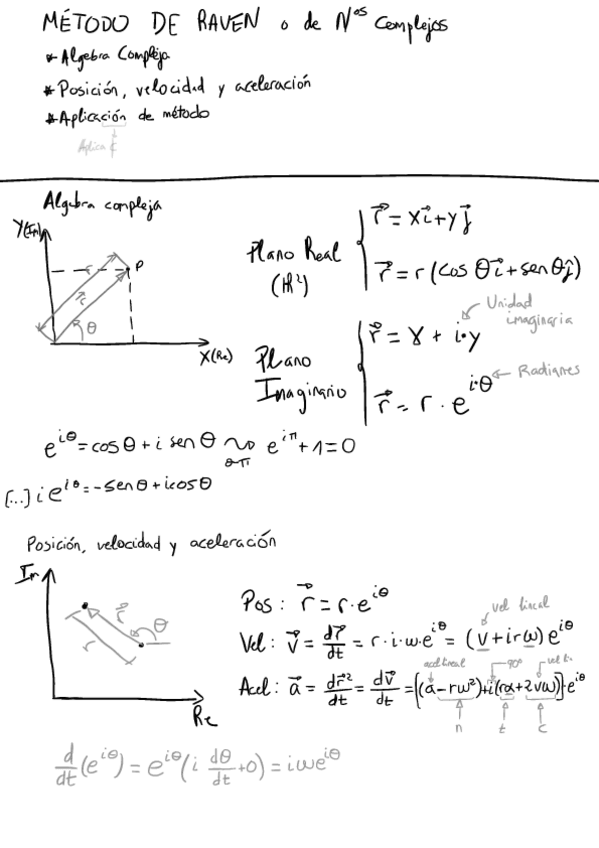 MÉTODO DE RAVEN o de Nos Complejos
* Algebra Compleja
* Posición, velocidad y aceleración
* Aplicación de método
Aplica
Algebra compleja
Y(Im)
P
r
θ
X(Re)
Plano Real
(ℝ²)
r⃗ = xi⃗+yj⃗
r⃗ = r (cos θi⃗+senθĵ)
Unidad
imaginaria
Plano
Imaginario
r⃗ = x + i·y
r⃗ = r · e^{i·θ}
Radianes
e^{iθ} = cosθ + i senθ ⤳ e^{iπ} + 1 = 0
θ=π
[...] i e^{iθ} = -senθ + icosθ
Posición, velocidad y aceleración
Im
r⃗
θ
r
Re
Pos: r⃗ = r·e^{iθ}
vel lineal
Vel: v⃗ = dr⃗/dt = r·i·w·e^{iθ} = (v+irω)e^{iθ}
acel lineal
90°
Acel: a⃗ = dr⃗²/dt = dv⃗/dt = [(a-rω²)+i(rα+2vω)]·e^{iθ}
n t c
d/dt (e^{iθ}) = e^{iθ} (i dθ/dt +0) = iωe^{iθ}